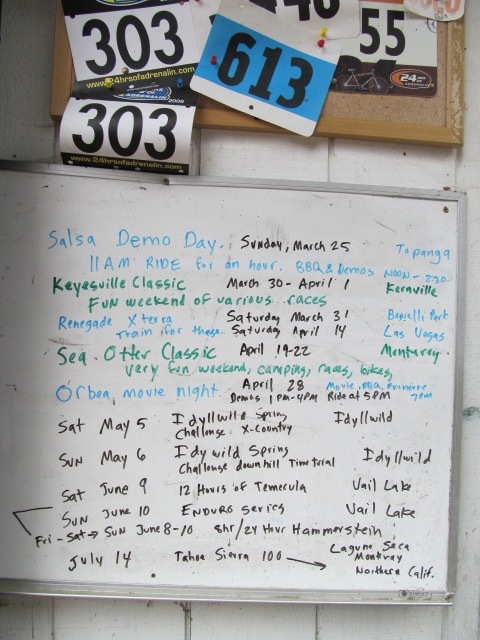 303
www.24hrsofadrenalin.com
613
55
24
303
www.24hrsofadrenalin.com
Salsa Demo Day. Sunday, March 25 Topanga
11AM RIDE for an hour. BBQ & Demos NOON - 2:30
Keyesville Classic March 30 - April 1 Kernville
Fun weekend of various races
Renegade Xterra Saturday March 31 Bonelli Park
Train for these. Saturday April 14 Las Vegas
Sea Otter Classic April 19-22 Monterey
very fun weekend, camping, races, bikes,
Orbea, movie night April 28 Movie, BBQ,
Demos 1PM-4PM Ride at 5PM 7PM
Sat May 5 Idyllwild Spring Idyllwild
Challenge X-Country
Sun May 6 Idywild Spring Idyllwild
Challenge downhill Time trial
Sat June 9 12 Hours of Temecula Vail Lake
Sun June 10 Enduro series Vail Lake
Fri - Sat → Sun June 8-10 8hr/24 Hour Hammerstein
Laguna Seca
July 14 Tahoe Sierra 100 → Montray
Northern Calif.